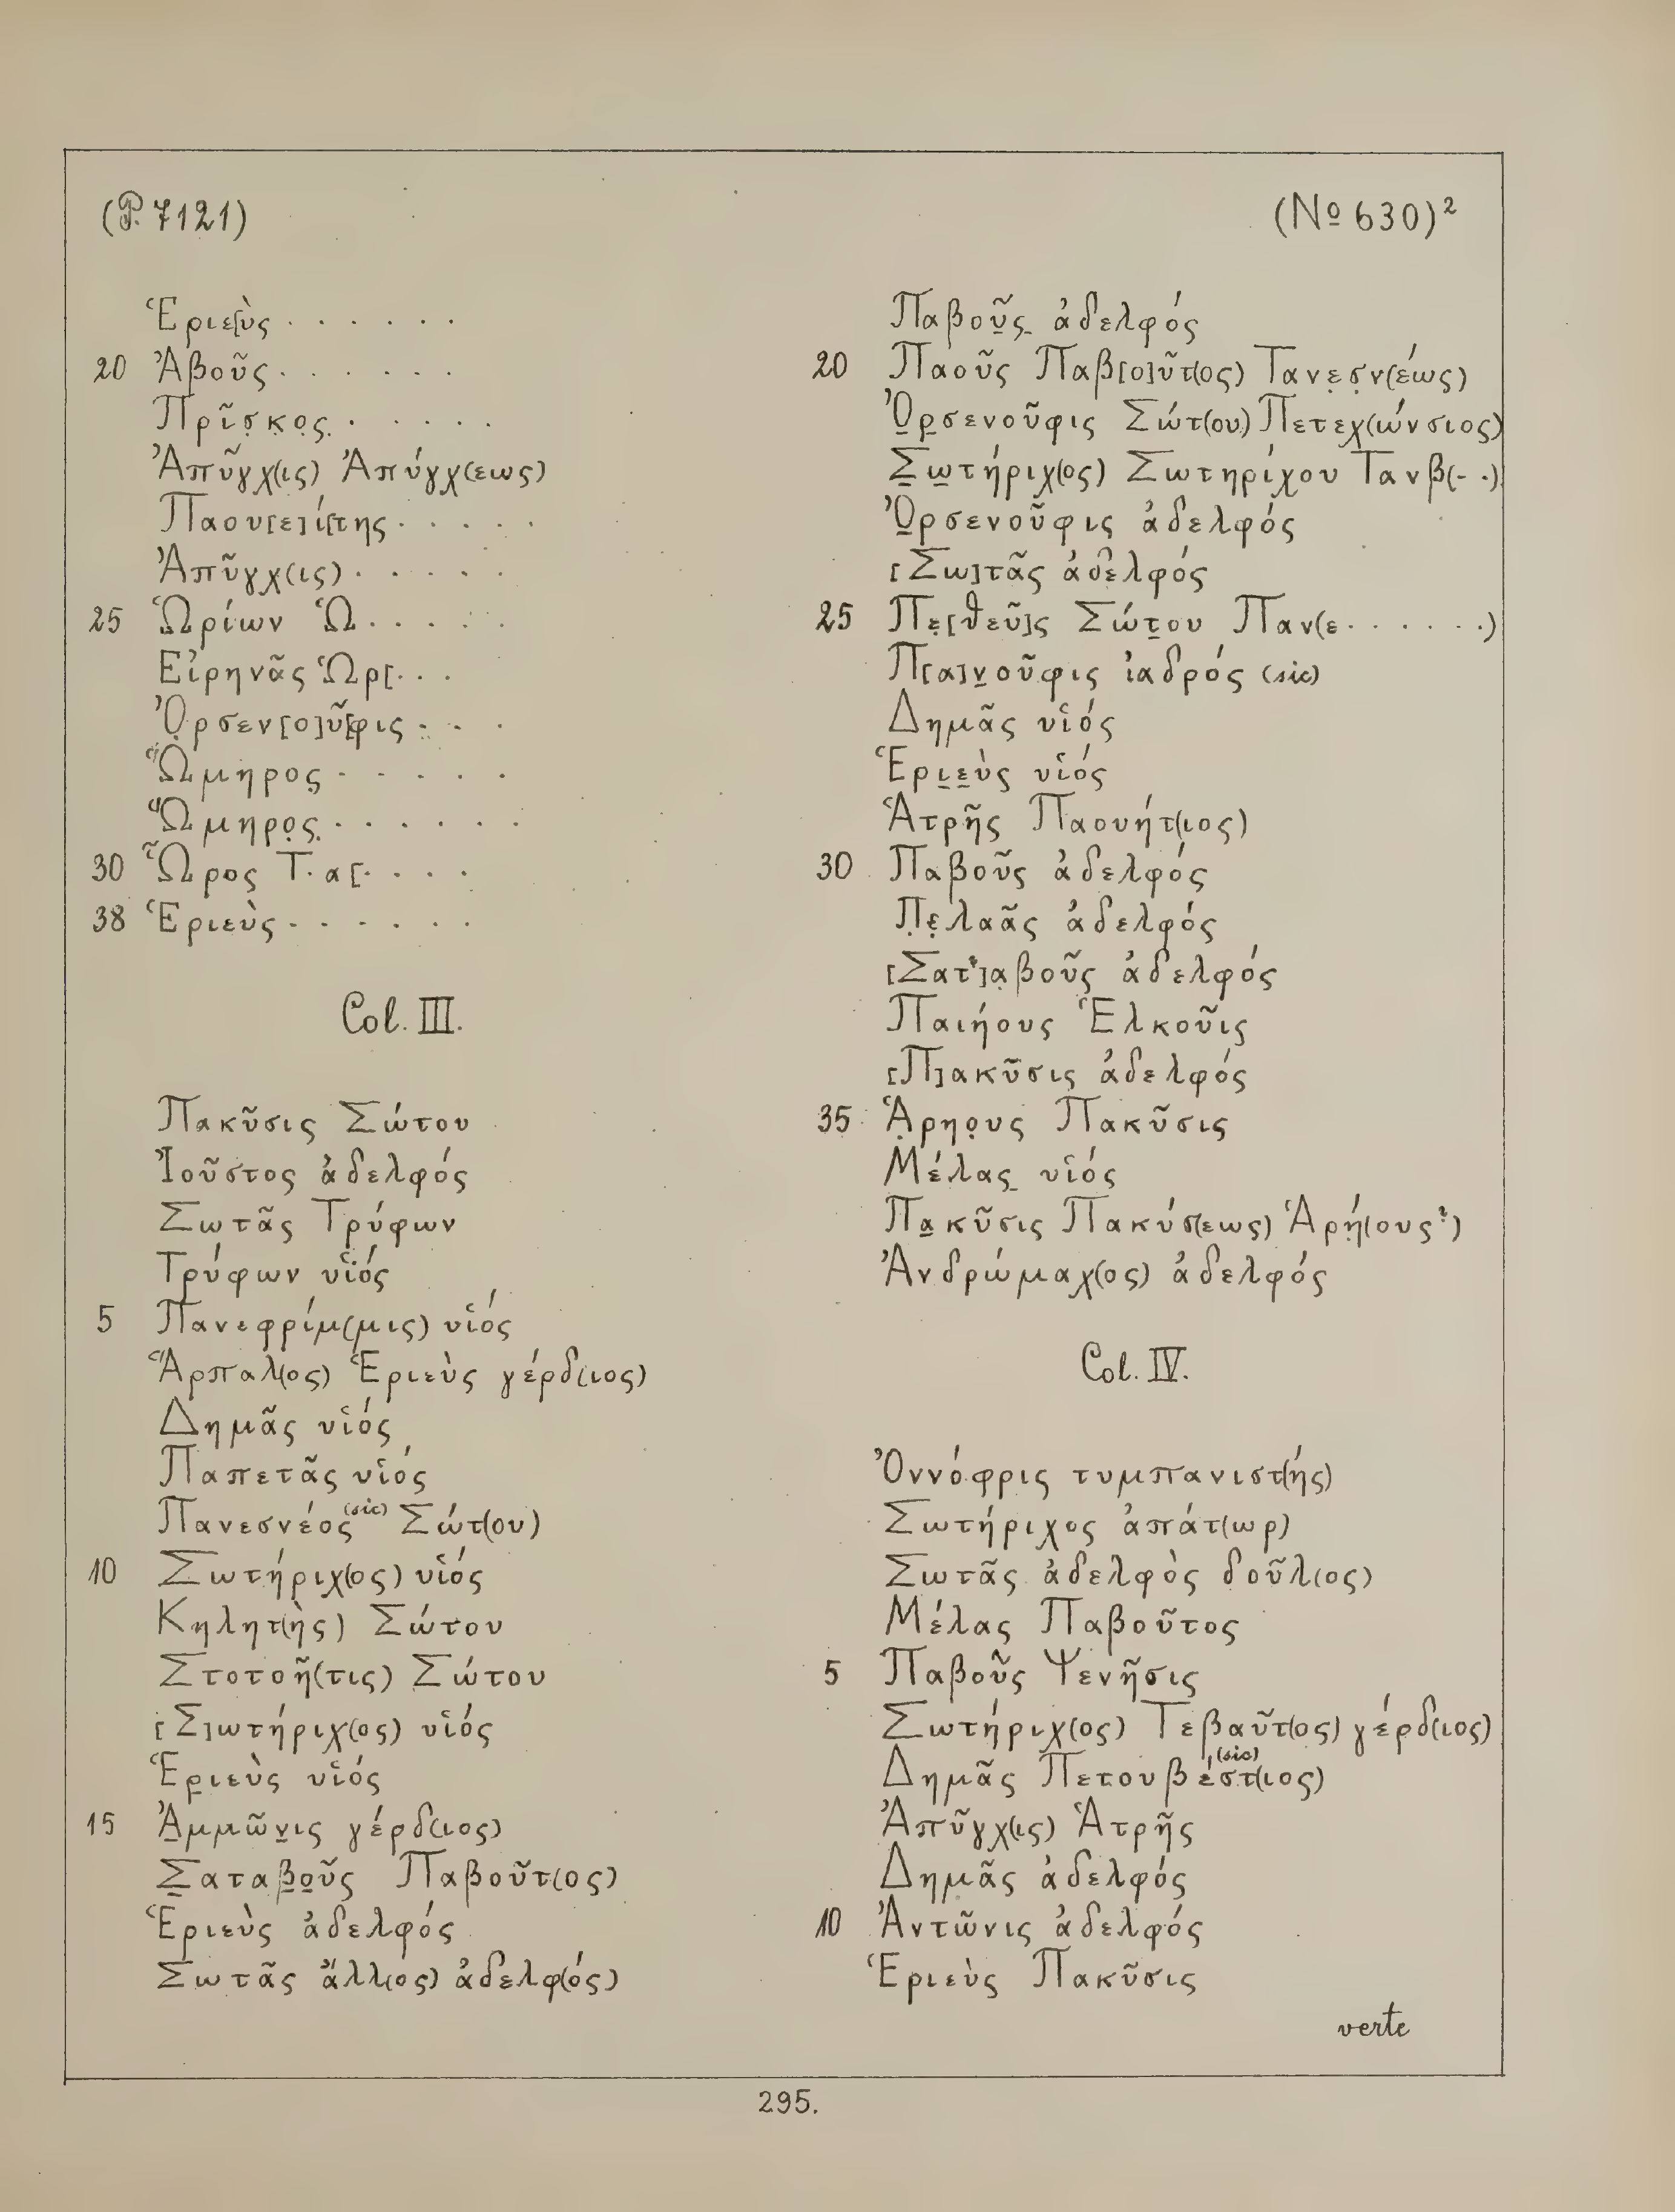 (P. 7121)
(No 630)²
Ἑριε[ὺς . . . . . .
20 Ἀβοῦς . . . . . .
Πρῖσκος . . . . .
Ἀπῦγχ(ις) Ἀπύγχ(εως)
Παου[ε]ί[της . . . . .
Ἀπῦγχ(ις) . . . . .
25 Ὡρίων Ὡ . . . . .
Εἰρηνᾶς Ὡρ[ . . .
Ὀρσεν[ο]ῦ[φις . . .
Ὥμηρος . . . . .
Ὥμηρος . . . . . .
30 Ὧρος Τ . α[ . . . .
38 Ἑριεὺς . . . . . .
Col. III.
Πακῦσις Σώτου
Ἰοῦστος ἀδελφός
Σωτᾶς Τρύφων
Τρύφων υἱός
5 Πανεφρίμ(μις) υἱός
Ἅρπαλ(ος) Ἑριεὺς γέρδ(ιος)
Δημᾶς υἱός
Παπετᾶς υἱός
Πανεσνέος (sic) Σώτ(ου)
10 Σωτήριχ(ος) υἱός
Κηλητ(ὴς) Σώτου
Στοτοῆ(τις) Σώτου
[Σ]ωτήριχ(ος) υἱός
Ἑριεὺς υἱός
15 Ἀ̣μμῶν̣ις γέρδ(ιος)
Σ̣αταβ̣ο̣ῦς Παβοῦτ(ος)
Ἑριεὺς ἀδελφός
Σωτᾶς ἄλλ(ος) ἀδελφ(ός)
Παβοῦς̣ ἀδελφός
20 Παοῦς Παβ[ο]ῦτ(ος) Τανε̣σ̣ν(έως)
Ὀ̣ρ̣σενοῦφις Σώτ(ου) Πετεχ(ώνσιος)
Σ̣ω̣τήριχ(ος) Σωτηρίχου Τανβ(- -)
Ὀ̣ρσενοῦφις ἀδελφός
[Σω]τᾶς ἀδελφός
25 Πε̣[θεῦ]ς Σώτ̣ου Παν(ε . . . . . .)
Π[α]ν̣οῦφις ἰαδρός (sic)
Δημᾶς υἱός
Ἑρι̣ε̣ὺς υἱός
Ἁτρῆς Παουήτ(ιος)
30 Παβοῦς ἀδελφός
Π̣ε̣λαᾶς ἀδελφός
[Σατ?]α̣βοῦς ἀδελφός
Παιήους Ἑλκοῦις
[Π]ακῦσις ἀδελφός
35 Ἁ̣ρηο̣υς Πακῦσις
Μέλας̣ υἱός
Πα̣κῦσις Πακύσ(εως) Ἁρή̣(ους?)
Ἀνδρώμαχ(ος) ἀδελφός
Col. IV.
Ὀννόφρις τυμπανιστ(ής)
Σωτήριχος ἀπάτ(ωρ)
Σωτᾶς ἀδελφὸς δοῦλ(ος)
Μέλας Παβοῦτος
5 Παβοῦς Ψενῆσις
Σωτήριχ(ος) Τεβαῦτ(ος) γέρδ(ιος)
Δημᾶς Πετουβέστ(ιος) (sic)
Ἀπῦγχ(ις) Ἁτρῆς
Δημᾶς ἀδελφός
10 Ἀντῶνις ἀδελφός
Ἑριεὺς Πακῦσις
verte
295.